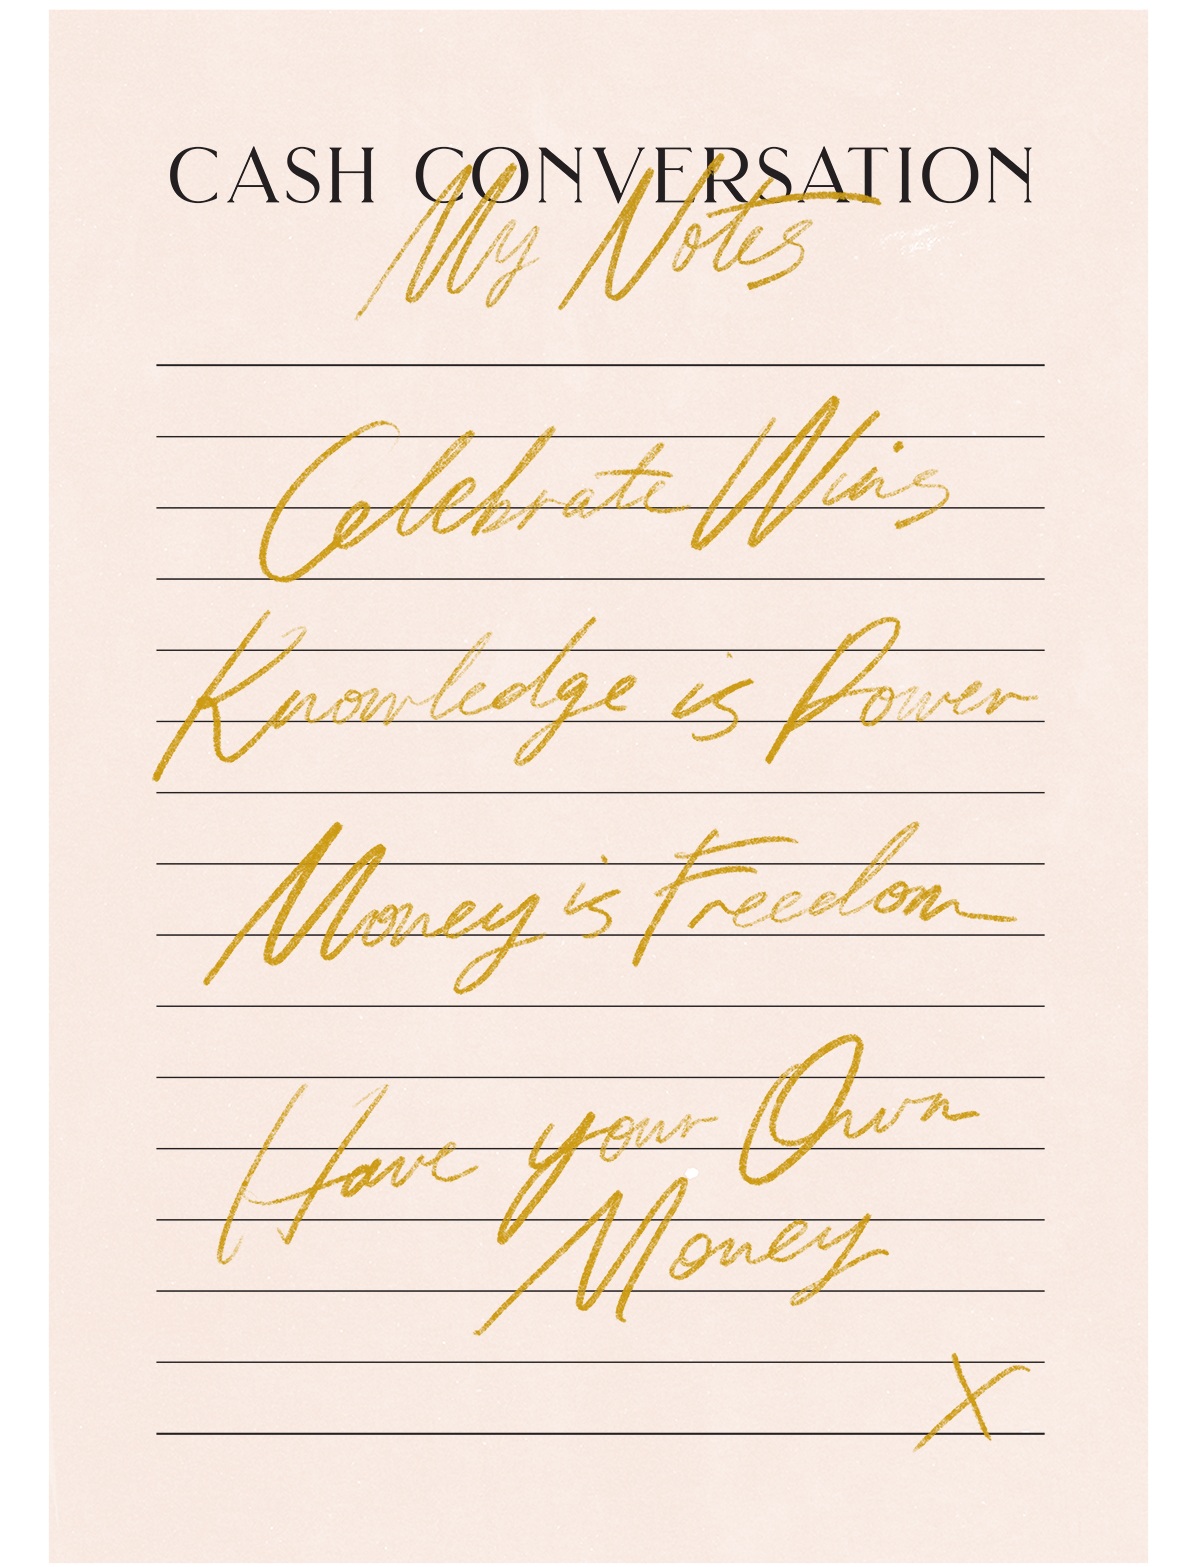 CASH CONVERSATION
My Notes
Celebrate Wins
Knowledge is Power
Money is Freedom
Have your Own
Money
X